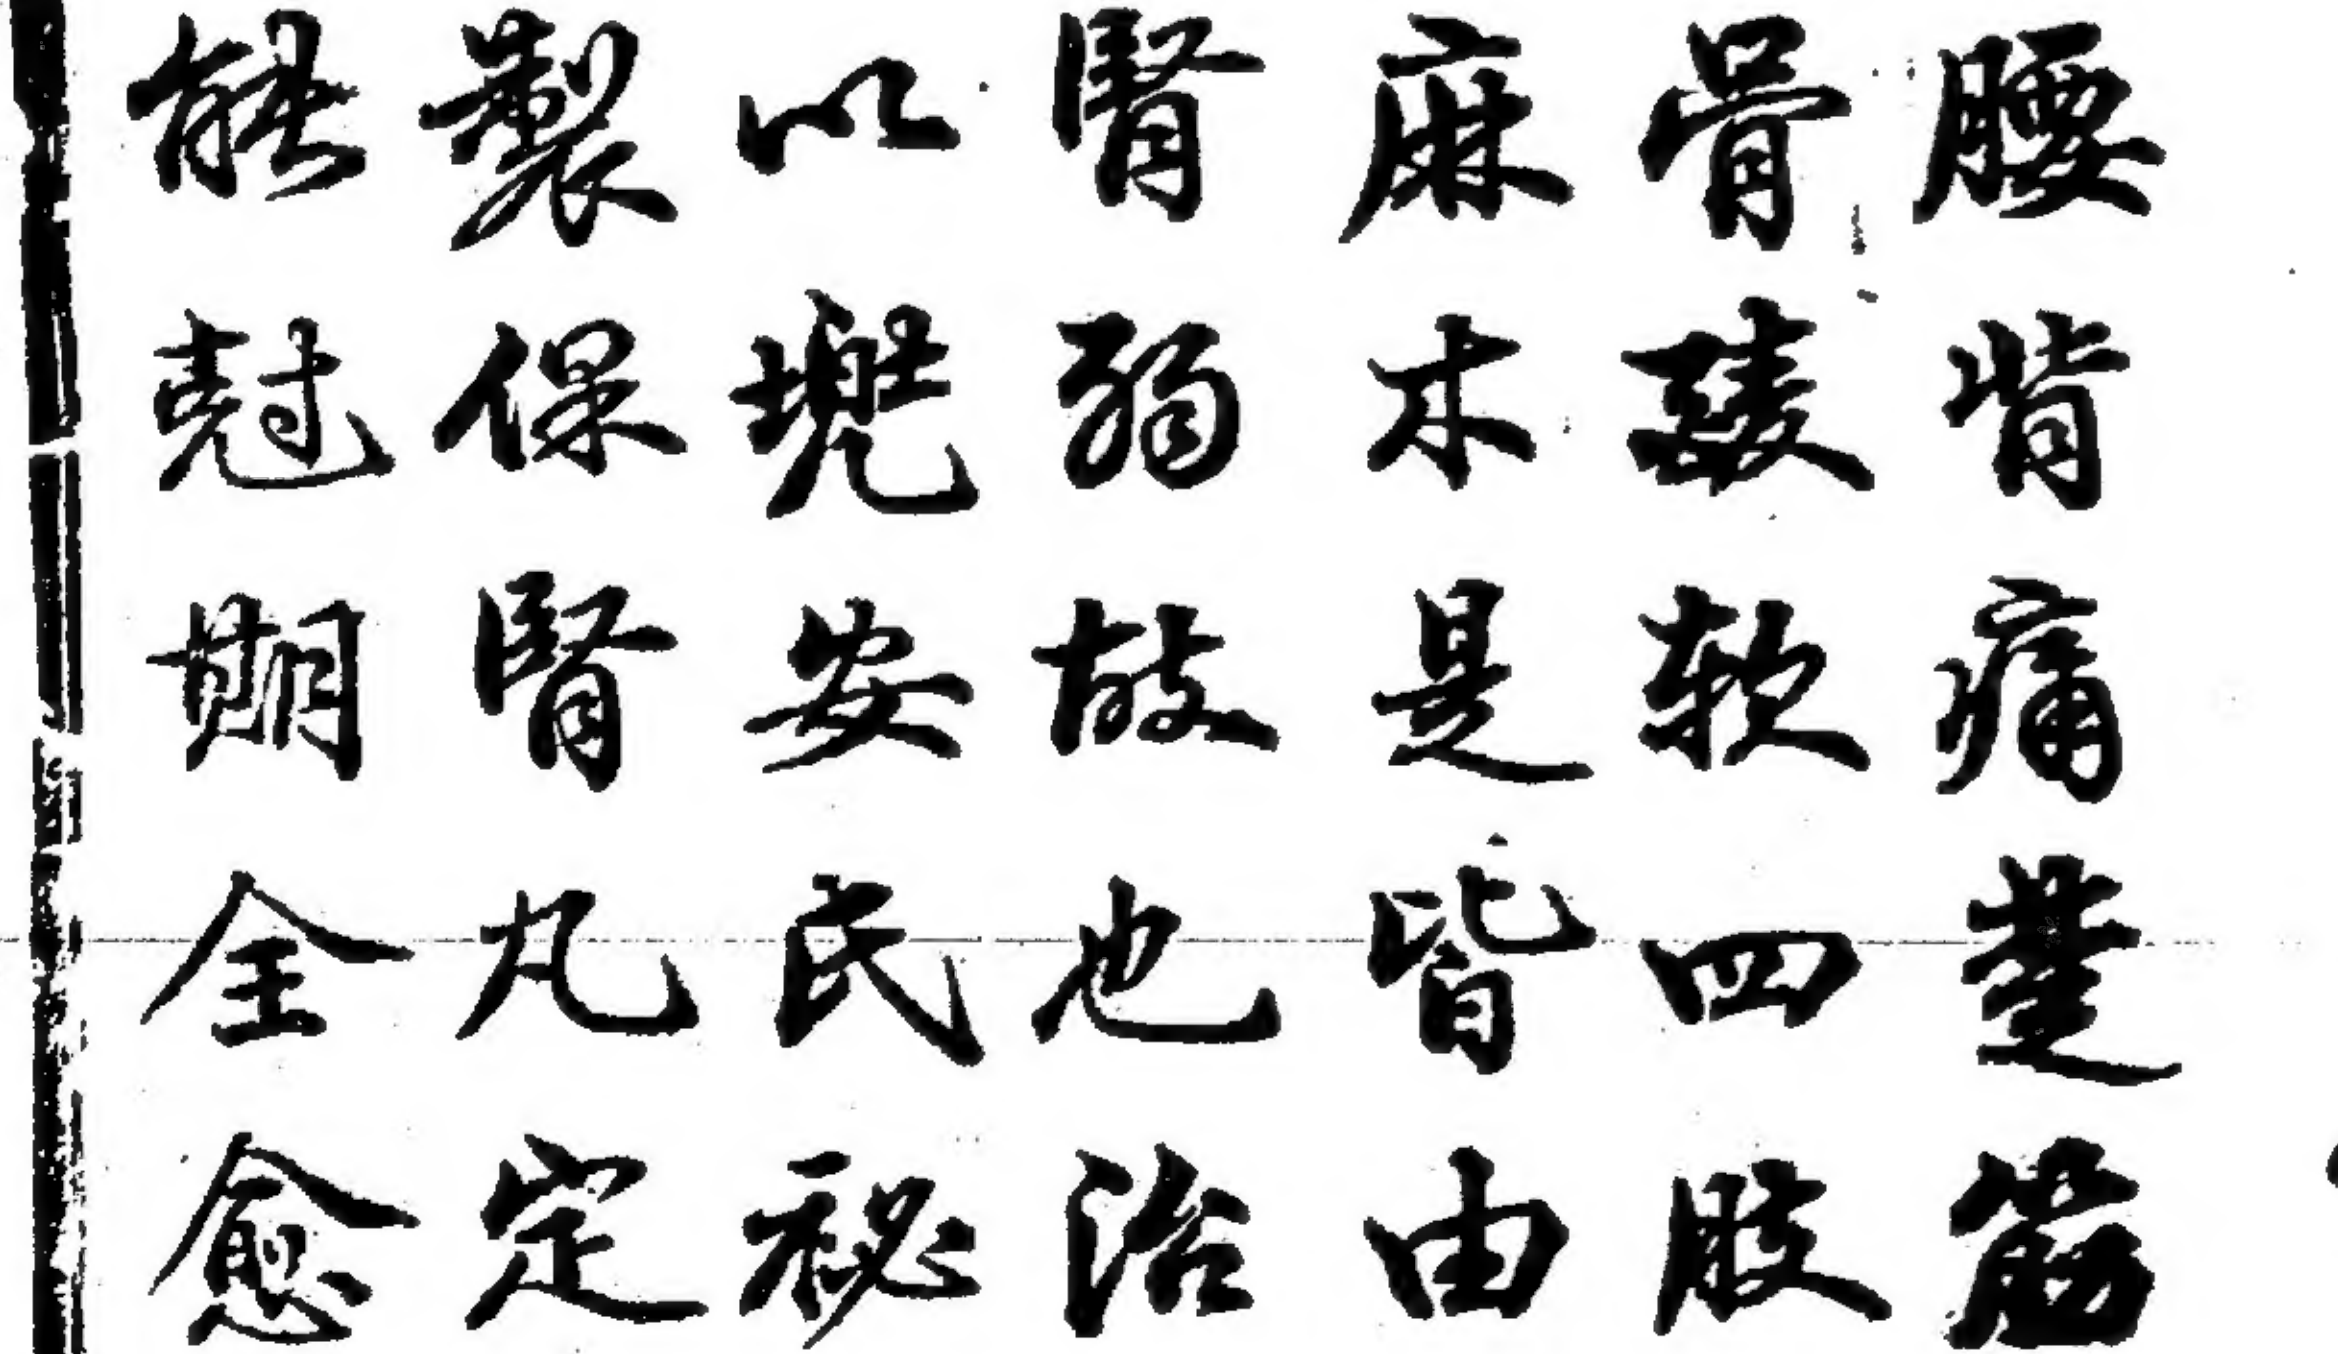 腰背痛楚筋
骨酸軟四肢
麻木是皆由
腎弱故也治
以兜安氏祕
製保腎丸定
能尅期全愈